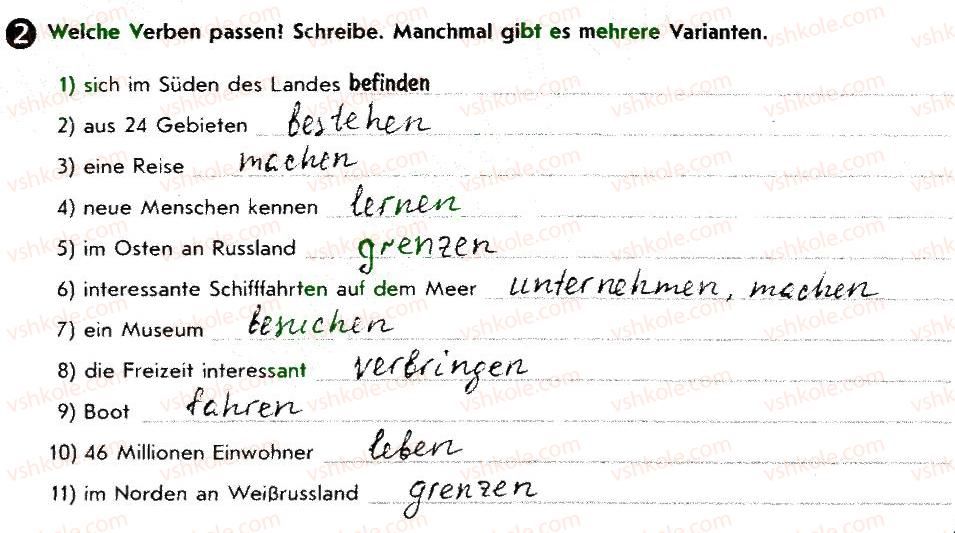 2 Welche Verben passen? Schreibe. Manchmal gibt es mehrere Varianten.
1) sich im Süden des Landes befinden
2) aus 24 Gebieten bestehen
3) eine Reise machen
4) neue Menschen kennen lernen
5) im Osten an Russland grenzen
6) interessante Schifffahrten auf dem Meer unternehmen, machen
7) ein Museum besuchen
8) die Freizeit interessant verbringen
9) Boot fahren
10) 46 Millionen Einwohner leben
11) im Norden an Weißrussland grenzen